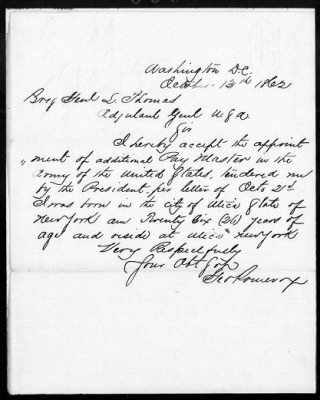 Washington D.C.
October 13th 1862
Brig Genl L. Thomas
Adjutant Genl U.S.A.
Sir
I hereby accept the appoint
"ment of additional Pay Master in the
Army of the United States, tendered me
by the President, per letter of Oct 2d
I was born in the city of Utica State of
New York am Twenty Six (26) years of
age and reside at Utica New York
Very Respectfully
Your Obt
Geo Pomeroy